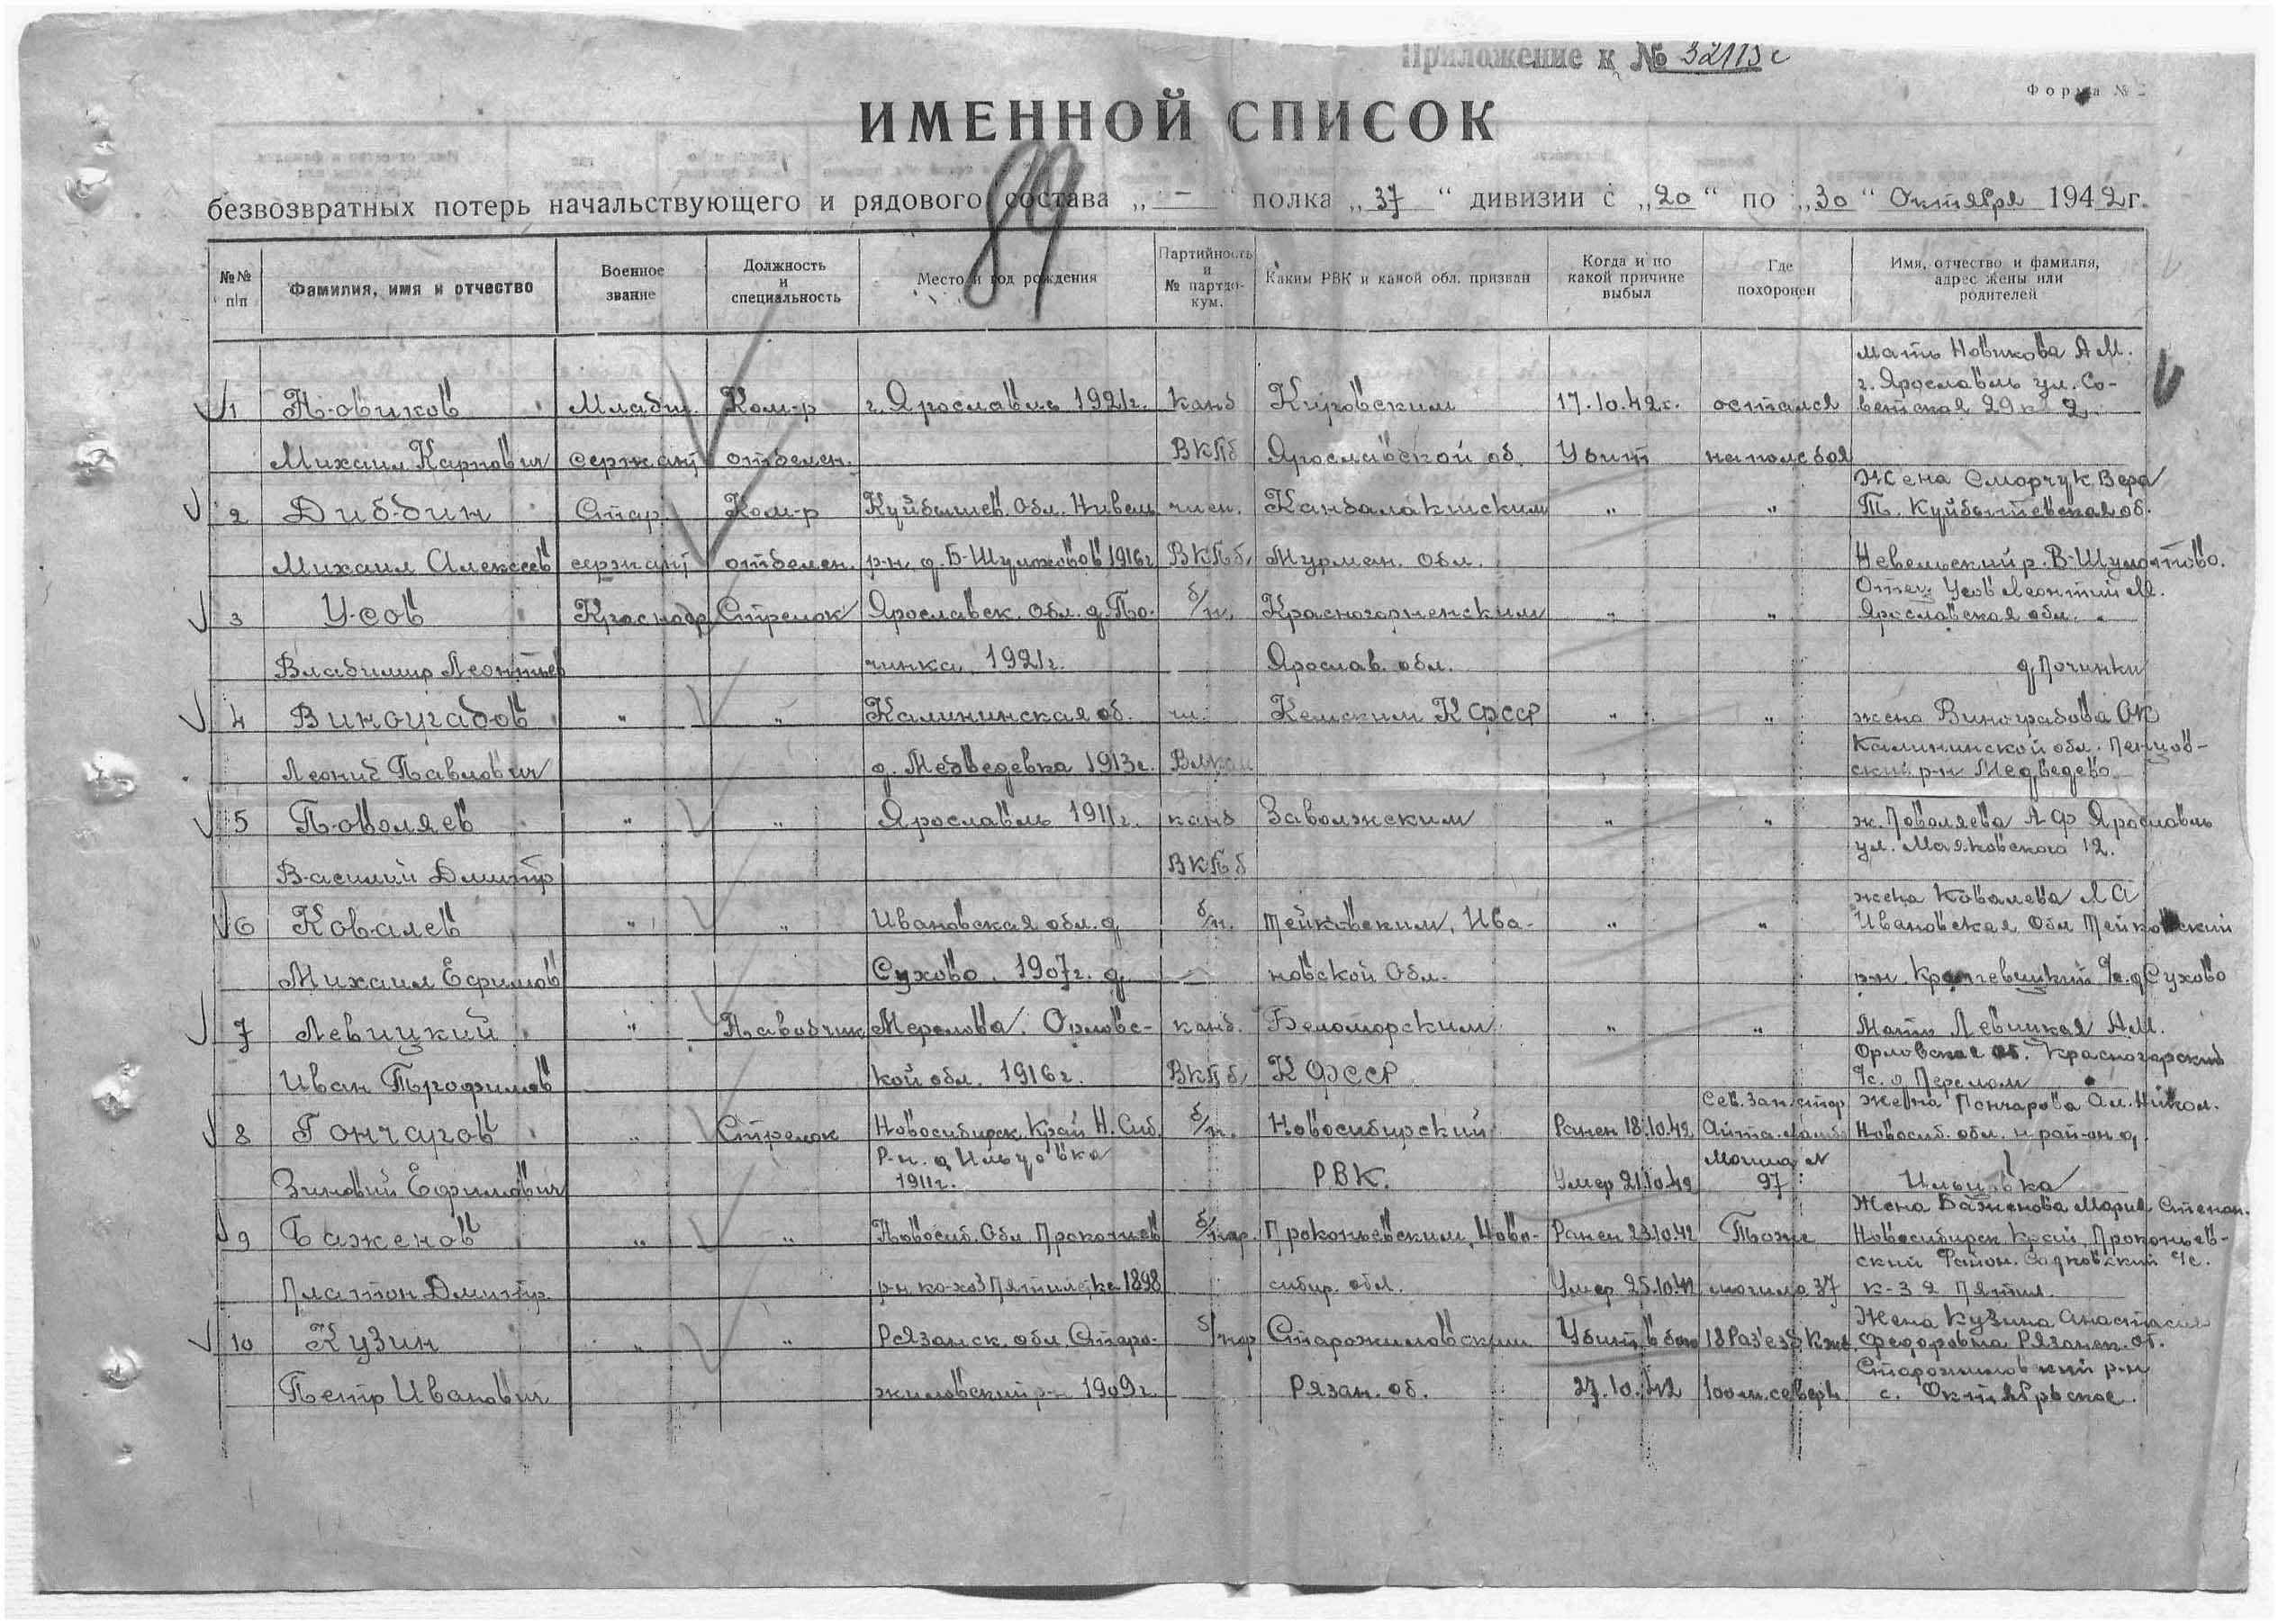 Приложение к № 32113с
Форма № 2
ИМЕННОЙ СПИСОК
89
безвозвратных потерь начальствующего и рядового состава „ — “ полка „37“ дивизии с „20“ по „30“ Октября 1942г.
№№ п/п
Фамилия, имя и отчество
Военное звание
Должность и специальность
Место и год рождения
Партийность и № партдокум.
Каким РВК и какой обл. призван
Когда и по какой причине выбыл
Где похоронен
Имя, отчество и фамилия, адрес жены или родителей
мать Новикова А М.
г. Ярославль ул. Со-
1 Новиков Младш. Ком-р г. Ярославль 1921г. канд Кировским 17.10.42г. остался ветская 29 к 2.
Михаил Карпович сержант отделен. ВКПб Ярославской об. Убит на поле боя
Жена Сморчук Вера
2 Дибдин Стар. Ком-р Куйбышев. Обл. Нивель член. Кандалакшским " " Т. Куйбышевская об.
Михаил Алексеев сержант отделен. р-н. д. Б-1916г ВКПб, Мурман. Обл. Невельский р.
Отец Усов Леонтий М.
3 Усов Краснодр Стрелок Ярославск. Обл. д. По- б/п. " " Ярославская обл.
Владимир Леонтьев чинка, 1921г. Ярослав. обл. д Починки
4 Виноградов " " Калининская об. чл. Кемским КФССР " " жена Виноградова ОК
Калининской обл.
Леонид Павлович д. Медведевка 1913г. ский р-н Медведево
5 Поволяев " " Ярославль 1911г. канд Заволжским " " ж. Поволяева А Ф Ярославль
ул. Маяковского 12.
Василий Дмитр ВКПб
жена Ковалева Л А
6 Ковалев " " Ивановская обл. д б/п. Тейковским, Ива- " " Ивановская Обл Тейковский
Михаил Ефимов Сухово. 1907г. д — новской Обл. р-н д Сухово
7 Левицкий " Наводчик Мерелова. Орловс- канд. Беломорским " " Мать Левицкая А.М.
Орловская об. Красногорский
Иван Трофимов кой обл. 1916г. ВКПб, КФССР ч/с. д Перелом
Сев. Зап. стор жена Гончарова Ал. Никол.
8 Гончаров " Стрелок Новосибирск Край Н. Сиб. б/п. Новосибирский Ранен 18.10.42 Новосиб. обл. н район д.
р-н. д Ильцовка Могила N
Зиновий Ефимович 1911г. РВК. Умер 21.10.42 97 Ильцовка
Жена Баженова Мария Степан.
9 Баженов " " Новосиб. Обл Прокопьев б/пар. Прокопьевским, Ново- Ранен 23.10.42 Тоже Новосибирск Край Прокопьев-
ский Район. ч/с.
Платон Дмитр. р-н ко-хоз Пятилетка 1898 сибир. обл. Умер 25.10.42 могила 37 к-з 2 Пятил.
Жена Кузина Анастасия
10 Кузин " " Рязанск. обл. Старо- б/пар Старожиловским Убит в бою 18 Раз'езд К.ж.д. Федоровна Рязанск. об.
Старожиловский р-н
Петр Иванович жиловский р-н 1909г. Рязан. об. 27.10.42 100 м. север. с. Октябрьское.